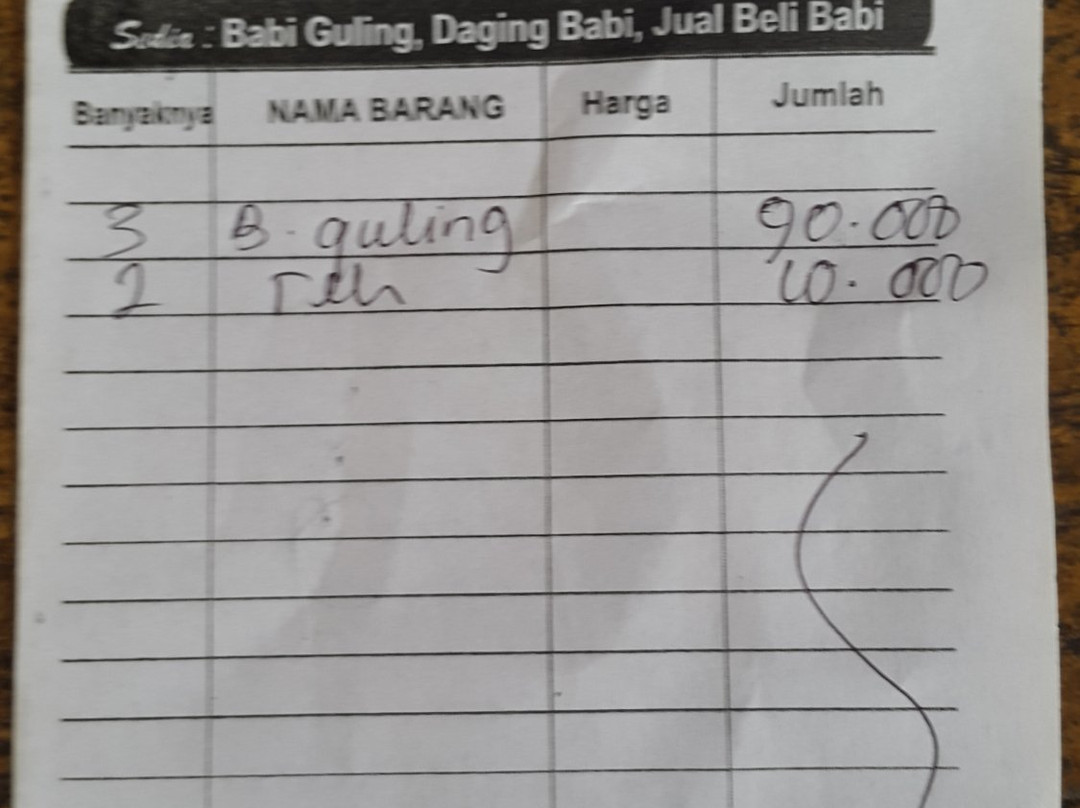 Sedia : Babi Guling, Daging Babi, Jual Beli Babi
Banyaknya NAMA BARANG Harga Jumlah
3 B. guling 90.000
2 Teh 10.000